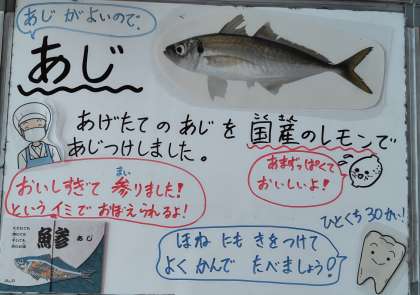 あじ がよいので、
あじ
あげたて の あじ を 国産のレモンで
こく さん
あじつけしました。
あまずっぱくて
おいしいよ!
おいしすぎて 参りました!
まい
という イミで おぼえられるよ!
鯵 あじ
ひとくち 30かい!
ほね にも きをつけて
よく かんで たべましょう!